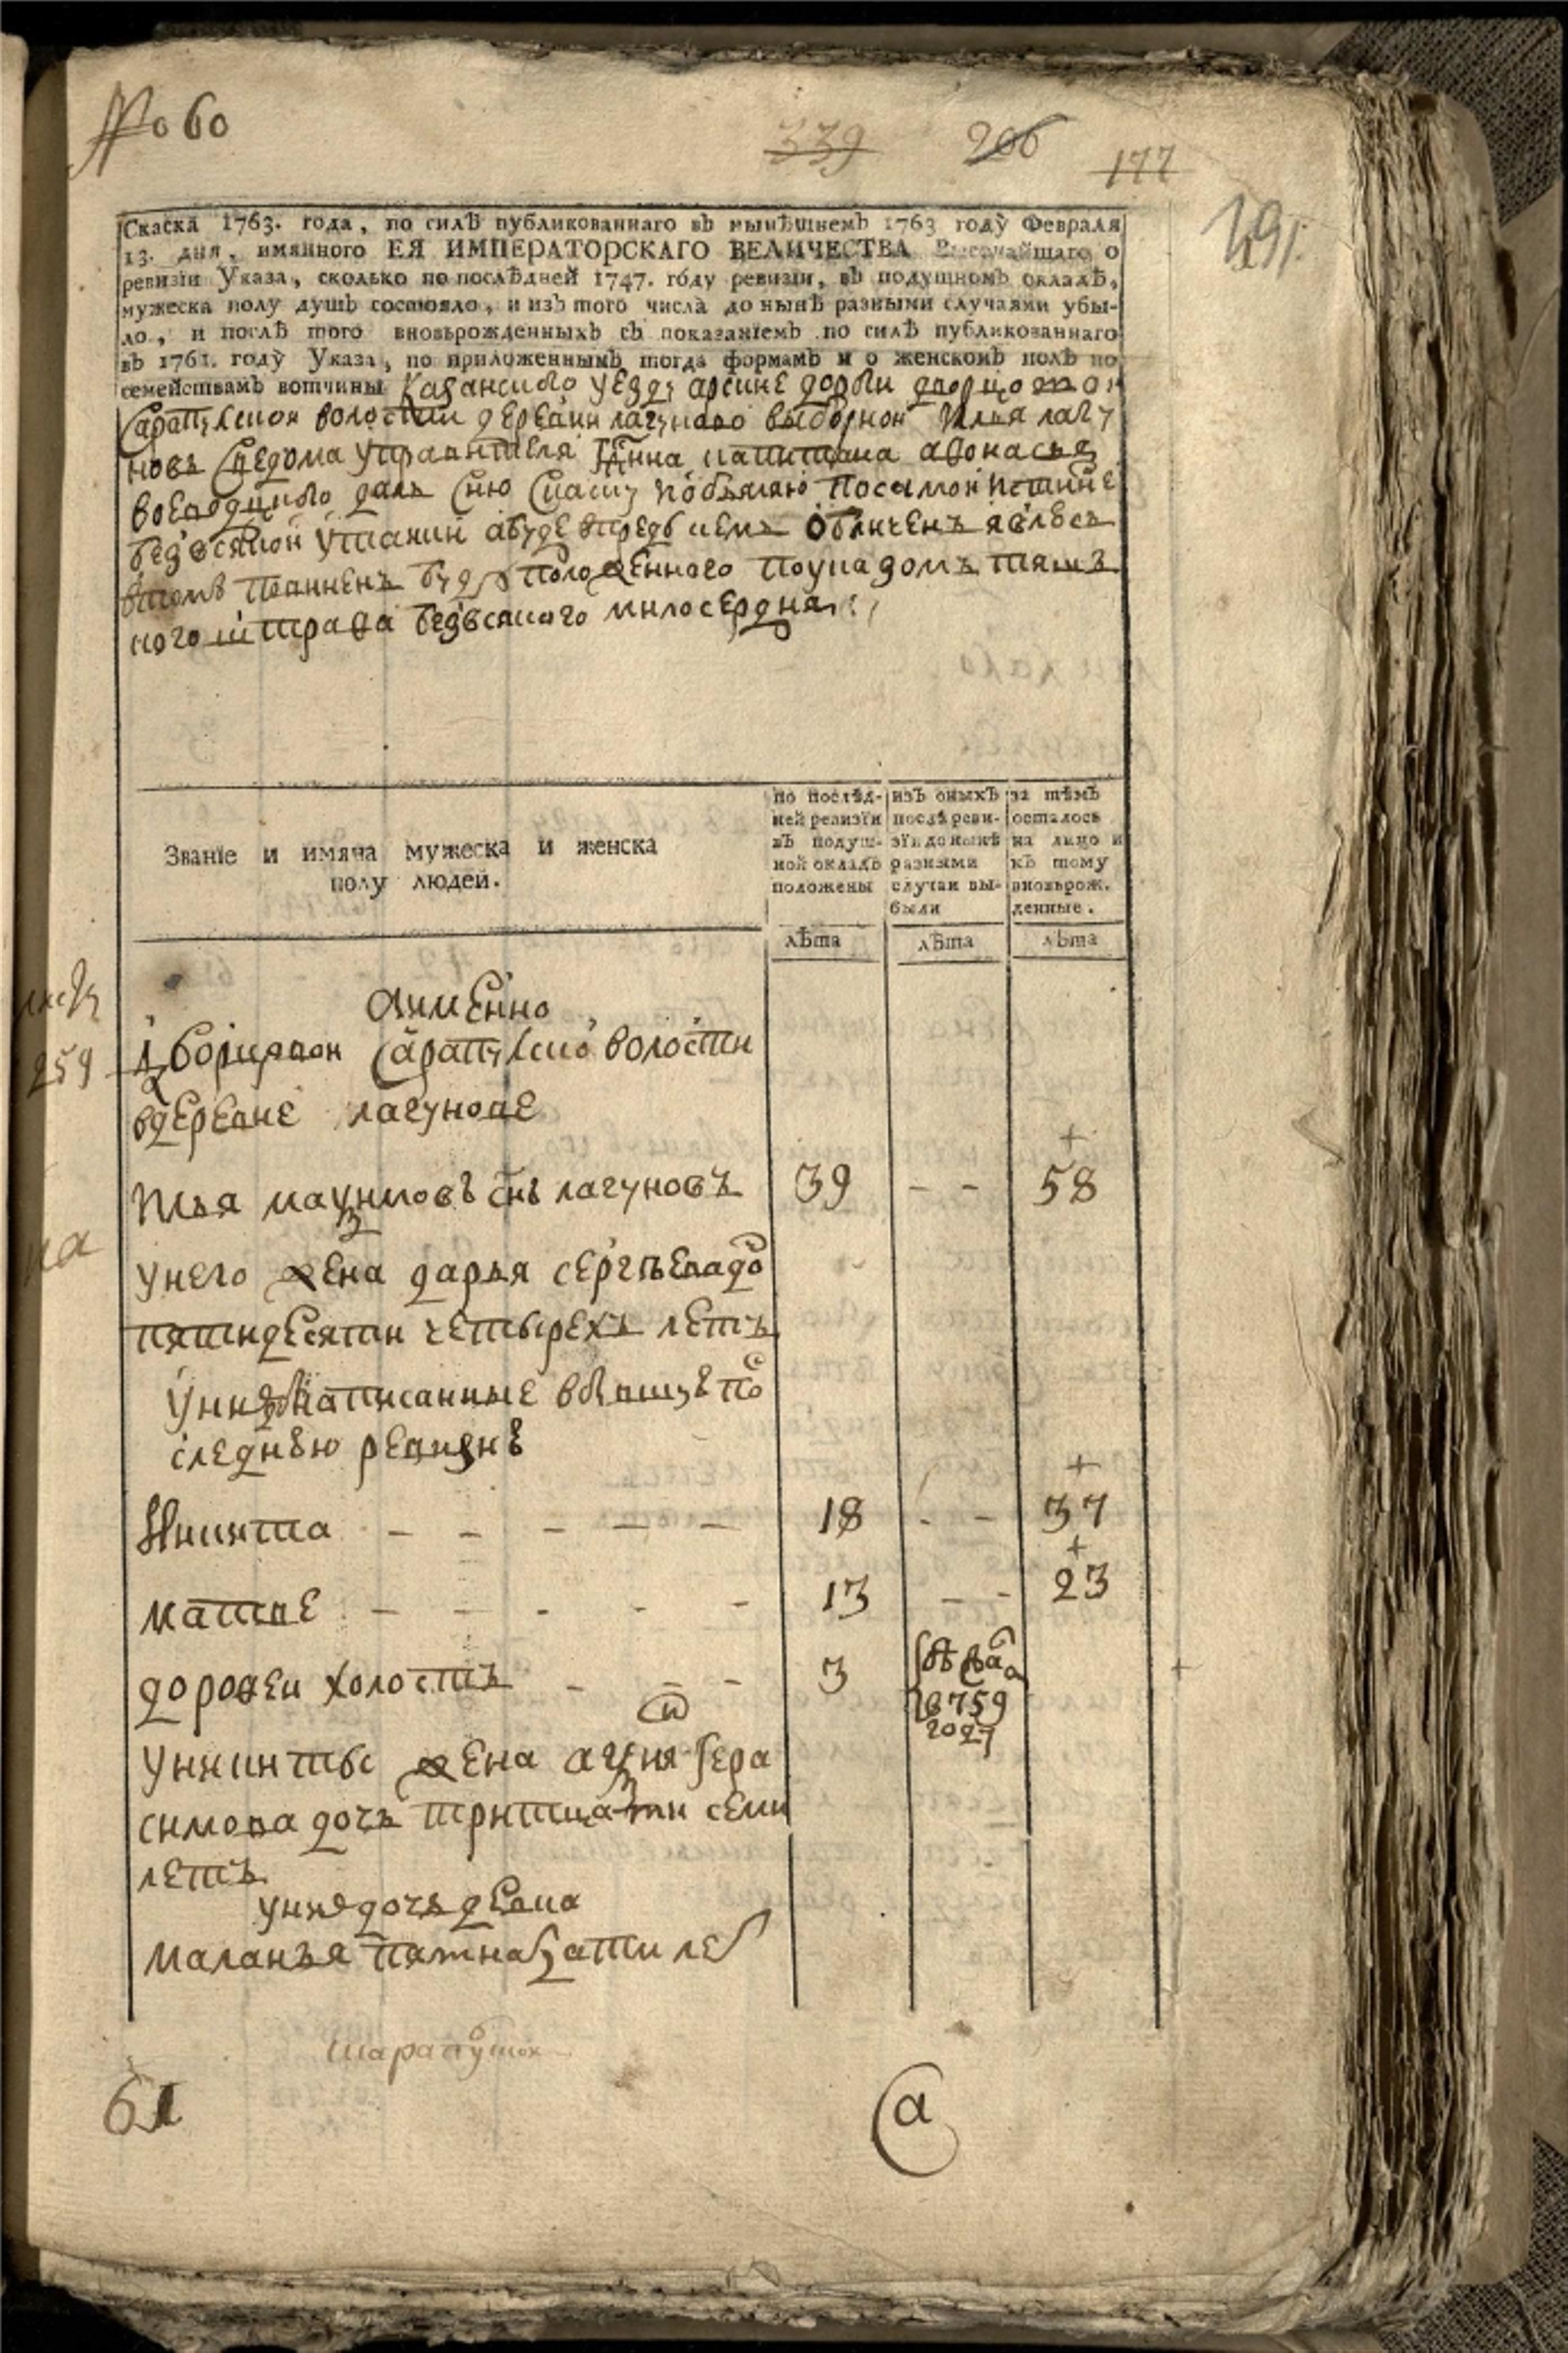 № 60
339 206 177
Скаска 1763. года, по силѣ публикованнаго въ нынѣшнемъ 1763 году Февраля
13. дня, имяннаго ЕЯ ИМПЕРАТОРСКАГО ВЕЛИЧЕСТВА Высочайшаго о
ревизїи Указа, сколько по послѣдней 1747. году ревизїи, въ подушномъ окладѣ,
мужеска полу душъ состояло, и изъ того числа до нынѣ разными случаями убы-
ло, и послѣ того вновьрожденныхъ съ показанїемъ по силѣ публикованнаго
въ 1761. году Указа, по приложеннымъ тогда формамъ и о женскомъ полѣ по
семействамъ вотчины Казанского уезду арские дороги дворцовои
Сарапулской волости деревни лагуново выборной Илья лагу
новъ Сведома управителя капитана афонасья
даль Сию Скаску по самой истинне
безовсякой утаики а буде впредь чемъ обличенъ явлюсь
втомъ повиненъ буду положенного поуказомъ тяжъ
кого штрафа безовсякого милосердия
Званїе и имяна мужеска и женска
полу людей.
по послѣд-
ней ревизїи
въ подуш-
ной окладъ
положены
изъ оныхъ
послѣ реви-
зїи до нынѣ
разными
случаи вы-
были
за тѣмъ
осталось
на лицо и
къ тому
вновьрож.
денные.
лѣта лѣта лѣта
Аимянно
259 Дворцовой Сарапулской волости
вдеревне лагунове
Илья макӱмовъ снъ лагуновъ 39 - - 58
унего жена дарья сергѣева до
пятидесяти четырехъ летъ
Унихъ написанные вбывшую по
следнюю ревизию
Никита - - - - - 18 - - 37
матве - - - - - 13 - - 23
дорофеи холостъ - - - 3
1759
году
Уникиты жена Гера
симова дочь тритцати семи
летъ
уних дочь девка
маланья пятнатцати лет
61
а